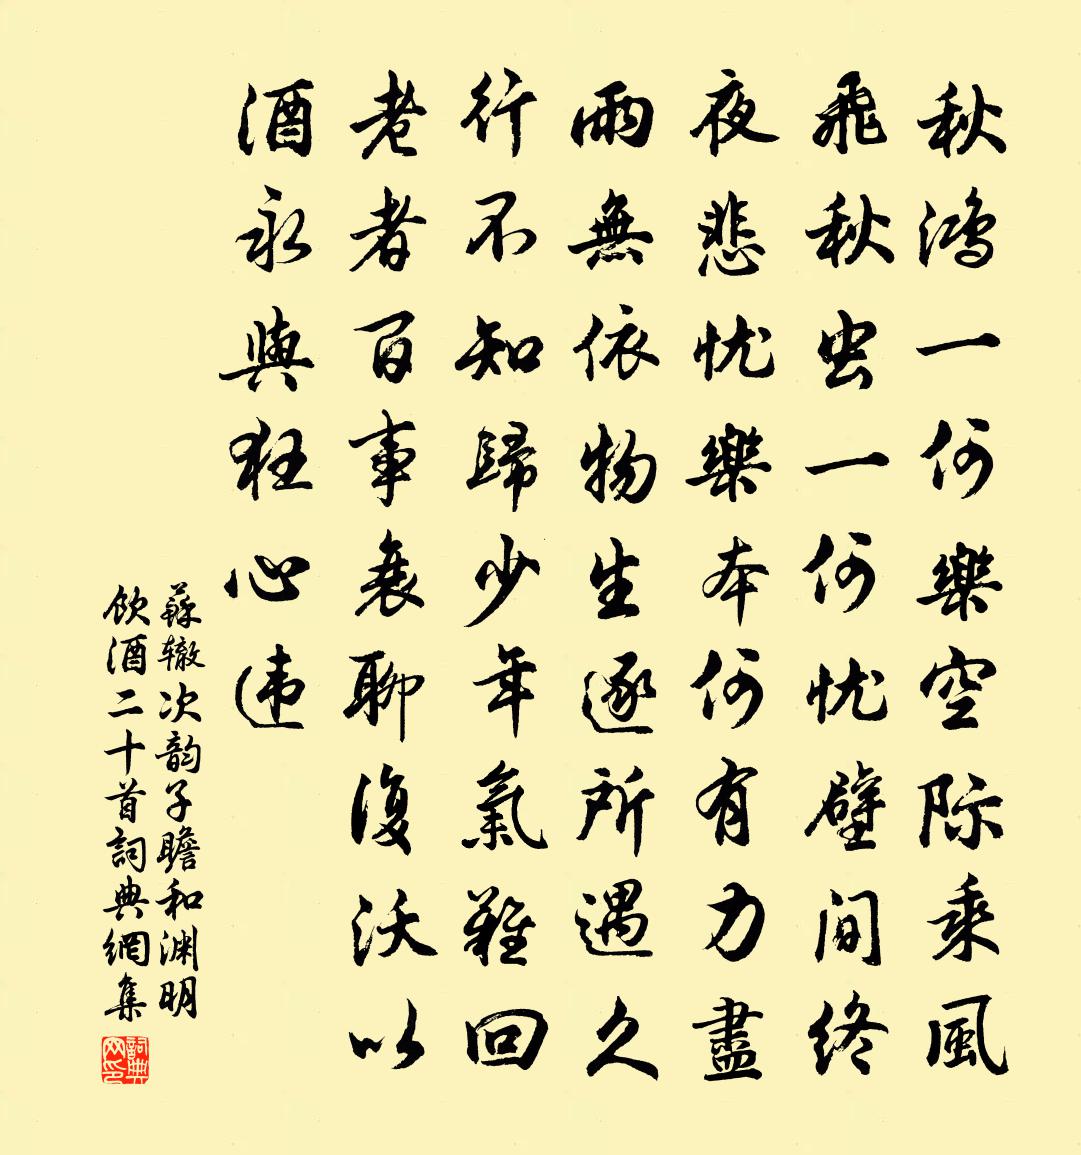 秋鴻一何樂空际乘風
飛秋虫一何忧壁间终
夜悲忧樂本何有力盡
兩無依物生逐所遇久
行不知歸少年氣難回
老者百事衰聊復沃以
酒永與狂心违
蘇辙次韵子瞻和渊明
飲酒二十首詞典網集
詞典网印